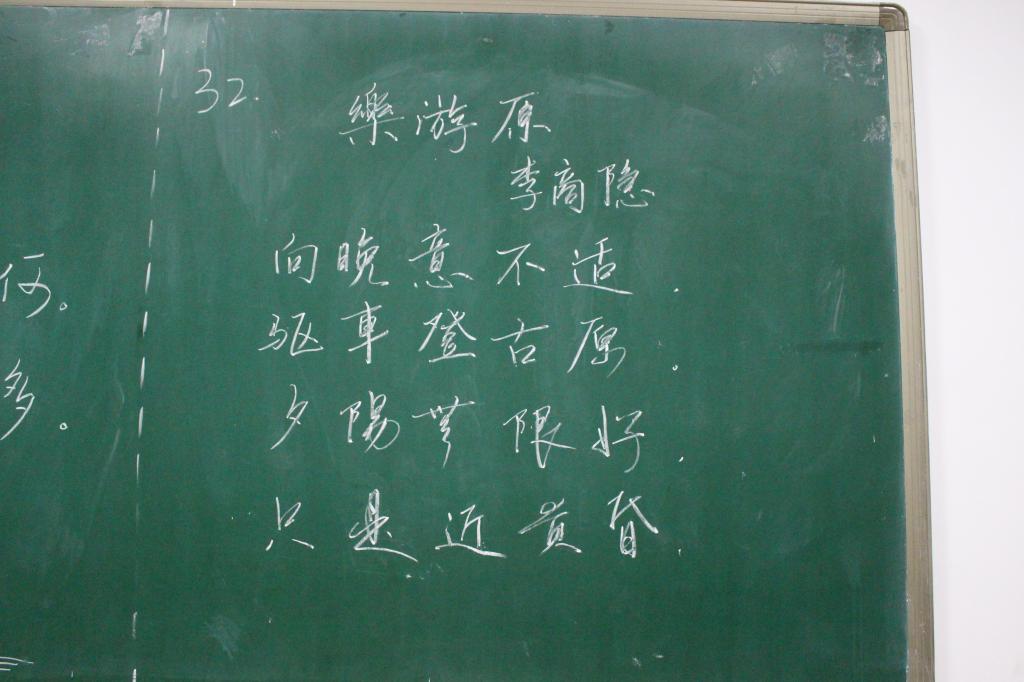 何。
多。
32.
樂游原
李商隐
向晚意不适.
驱車登古原.
夕陽無限好.
只是近黄昏.